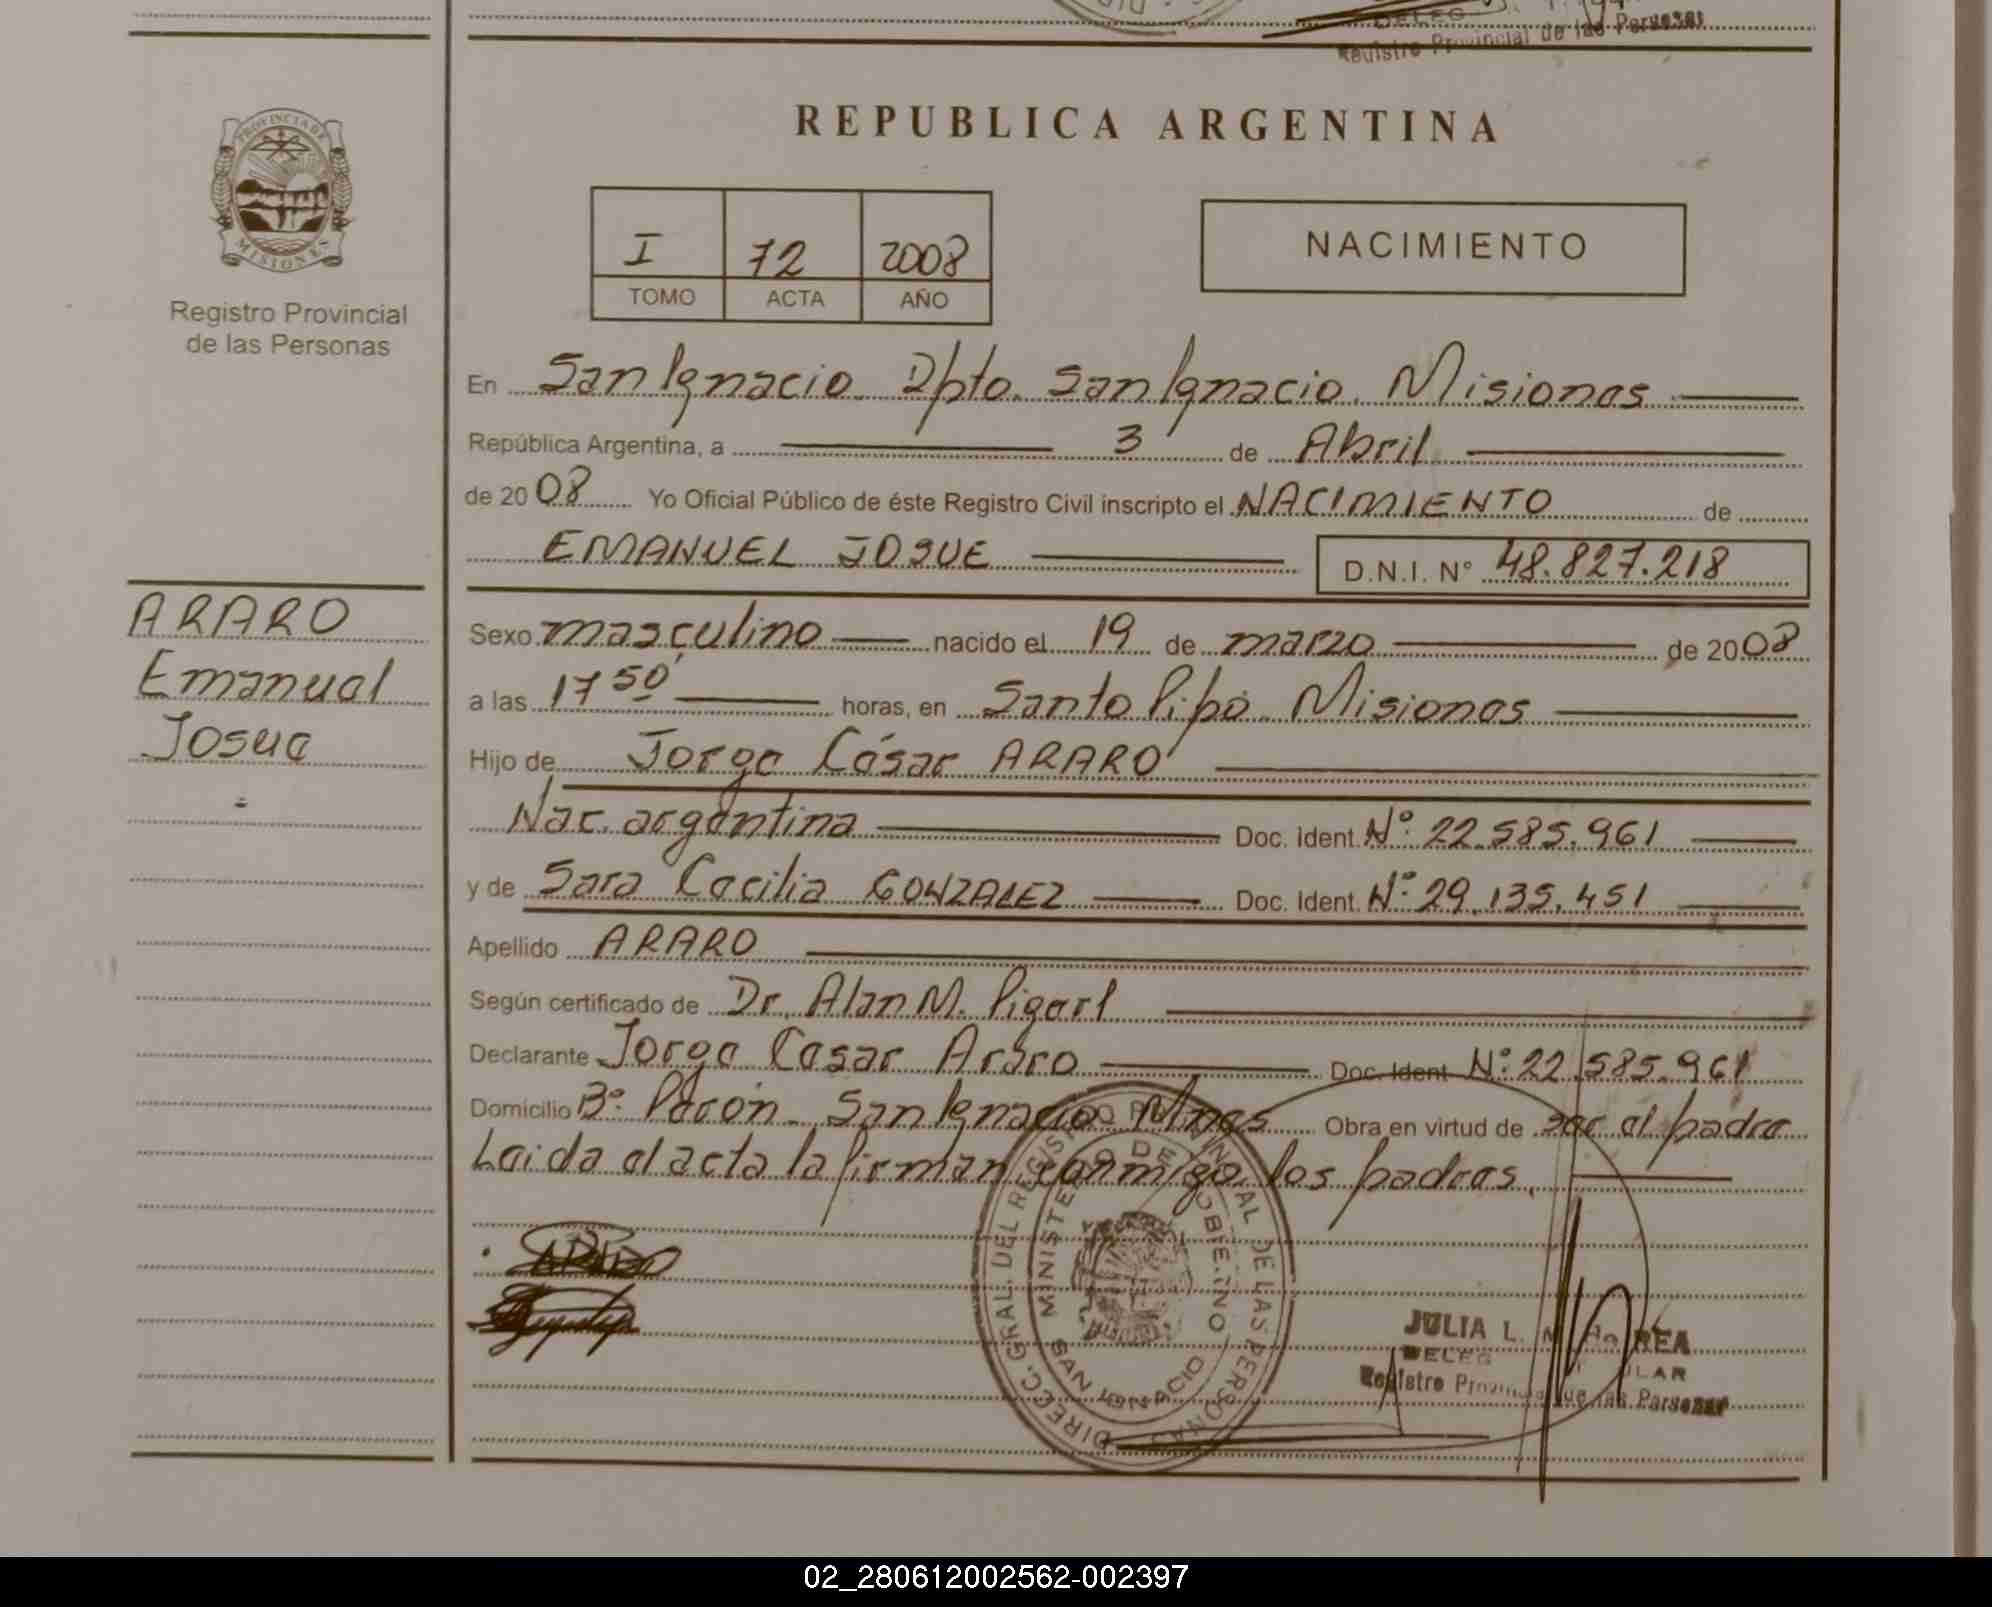 Registro Provincial de las Personas
REPUBLICA ARGENTINA
PROVINCIA DE
MISIONES
Registro Provincial
de las Personas
I 72 2008
TOMO ACTA AÑO
NACIMIENTO
En San Ignacio. Dpto. San Ignacio. Misiones
República Argentina, a 3 de Abril
de 2008 Yo Oficial Público de éste Registro Civil inscripto el NACIMIENTO de
EMANUEL JOSUE D.N.I. Nº 48.827.218
ARARO
Emanuel
Josue
Sexo masculino nacido el 19 de marzo de 2008
a las 17 50' horas, en Santo Pipó. Misiones
Hijo de Jorge César ARARO
Nac. argentina Doc. Ident. Nº: 22.585.961
y de Sara Cecilia GONZALEZ Doc. Ident. Nº: 29.135.451
Apellido ARARO
Según certificado de Dr. Alan M.
Declarante Jorge Cesar Araro Doc. Ident Nº: 22.585.961
Domicilio Bº. San Ignacio Mnes Obra en virtud de ser el padre
Leida el acta la firman conmigo los padres.
DIREC. GRAL. DEL REGISTRO PROVINCIAL DE LAS PERSONAS
MINISTERIO DE GOBIERNO
SAN IGNACIO
JULIA L.
Registro Provincial de las Personas
02_280612002562-002397